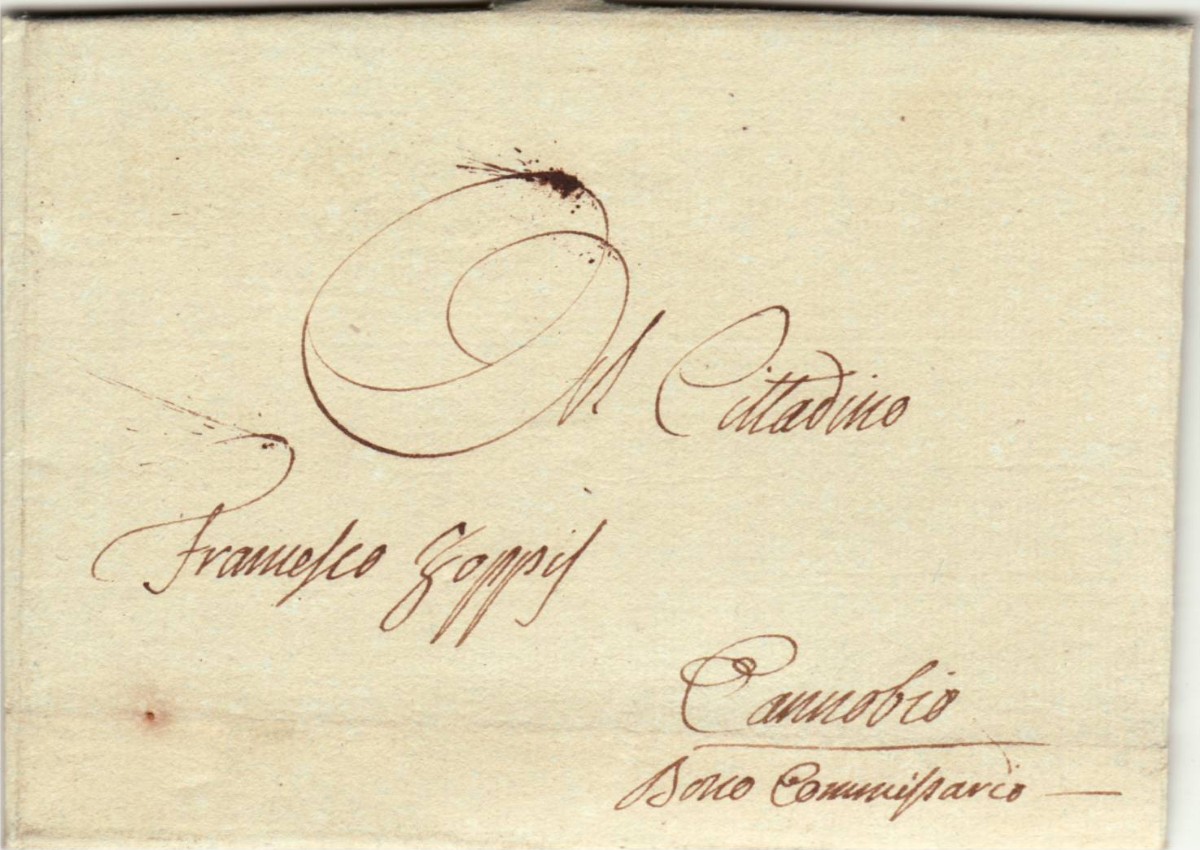 Al Cittadino
Francesco Zoppis
Cannobio
Bono Commissario